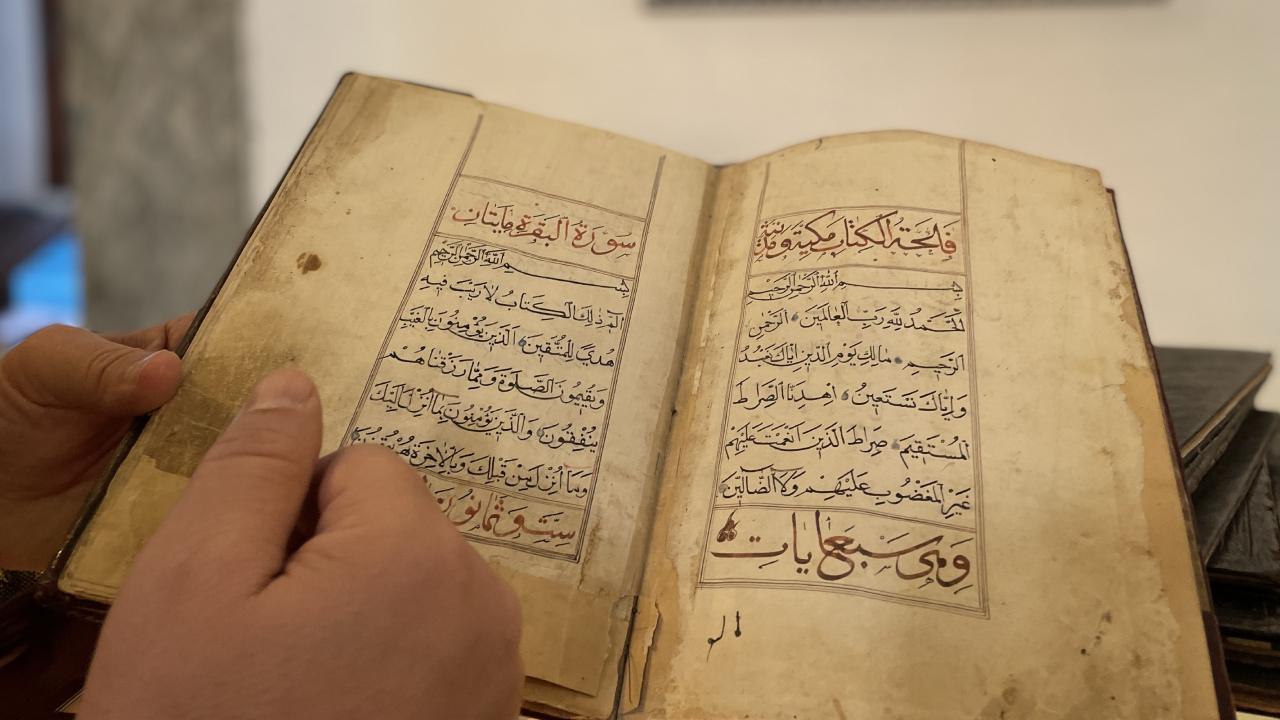 فاتحة الكتاب مكية ومدنية
بسم الله الرحمن الرحيم
الحمد لله رب العالمين الرحمن
الرحيم مالك يوم الدين اياك نعبد
واياك نستعين اهدنا الصراط
المستقيم صراط الذين انعمت عليهم
غير المغضوب عليهم ولا الضالين
وهى سبع ايات
سورة البقرة مايتان
بسم الله الرحمن الرحيم
الم ذلك الكتاب لا ريب فيه
هدى للمتقين الذين يؤمنون بالغيب
ويقيمون الصلوة ومما رزقناهم
ينفقون والذين يؤمنون بما انزل اليك
وما انزل من قبلك وبالاخرة هم يوقنون
ست وثمانون